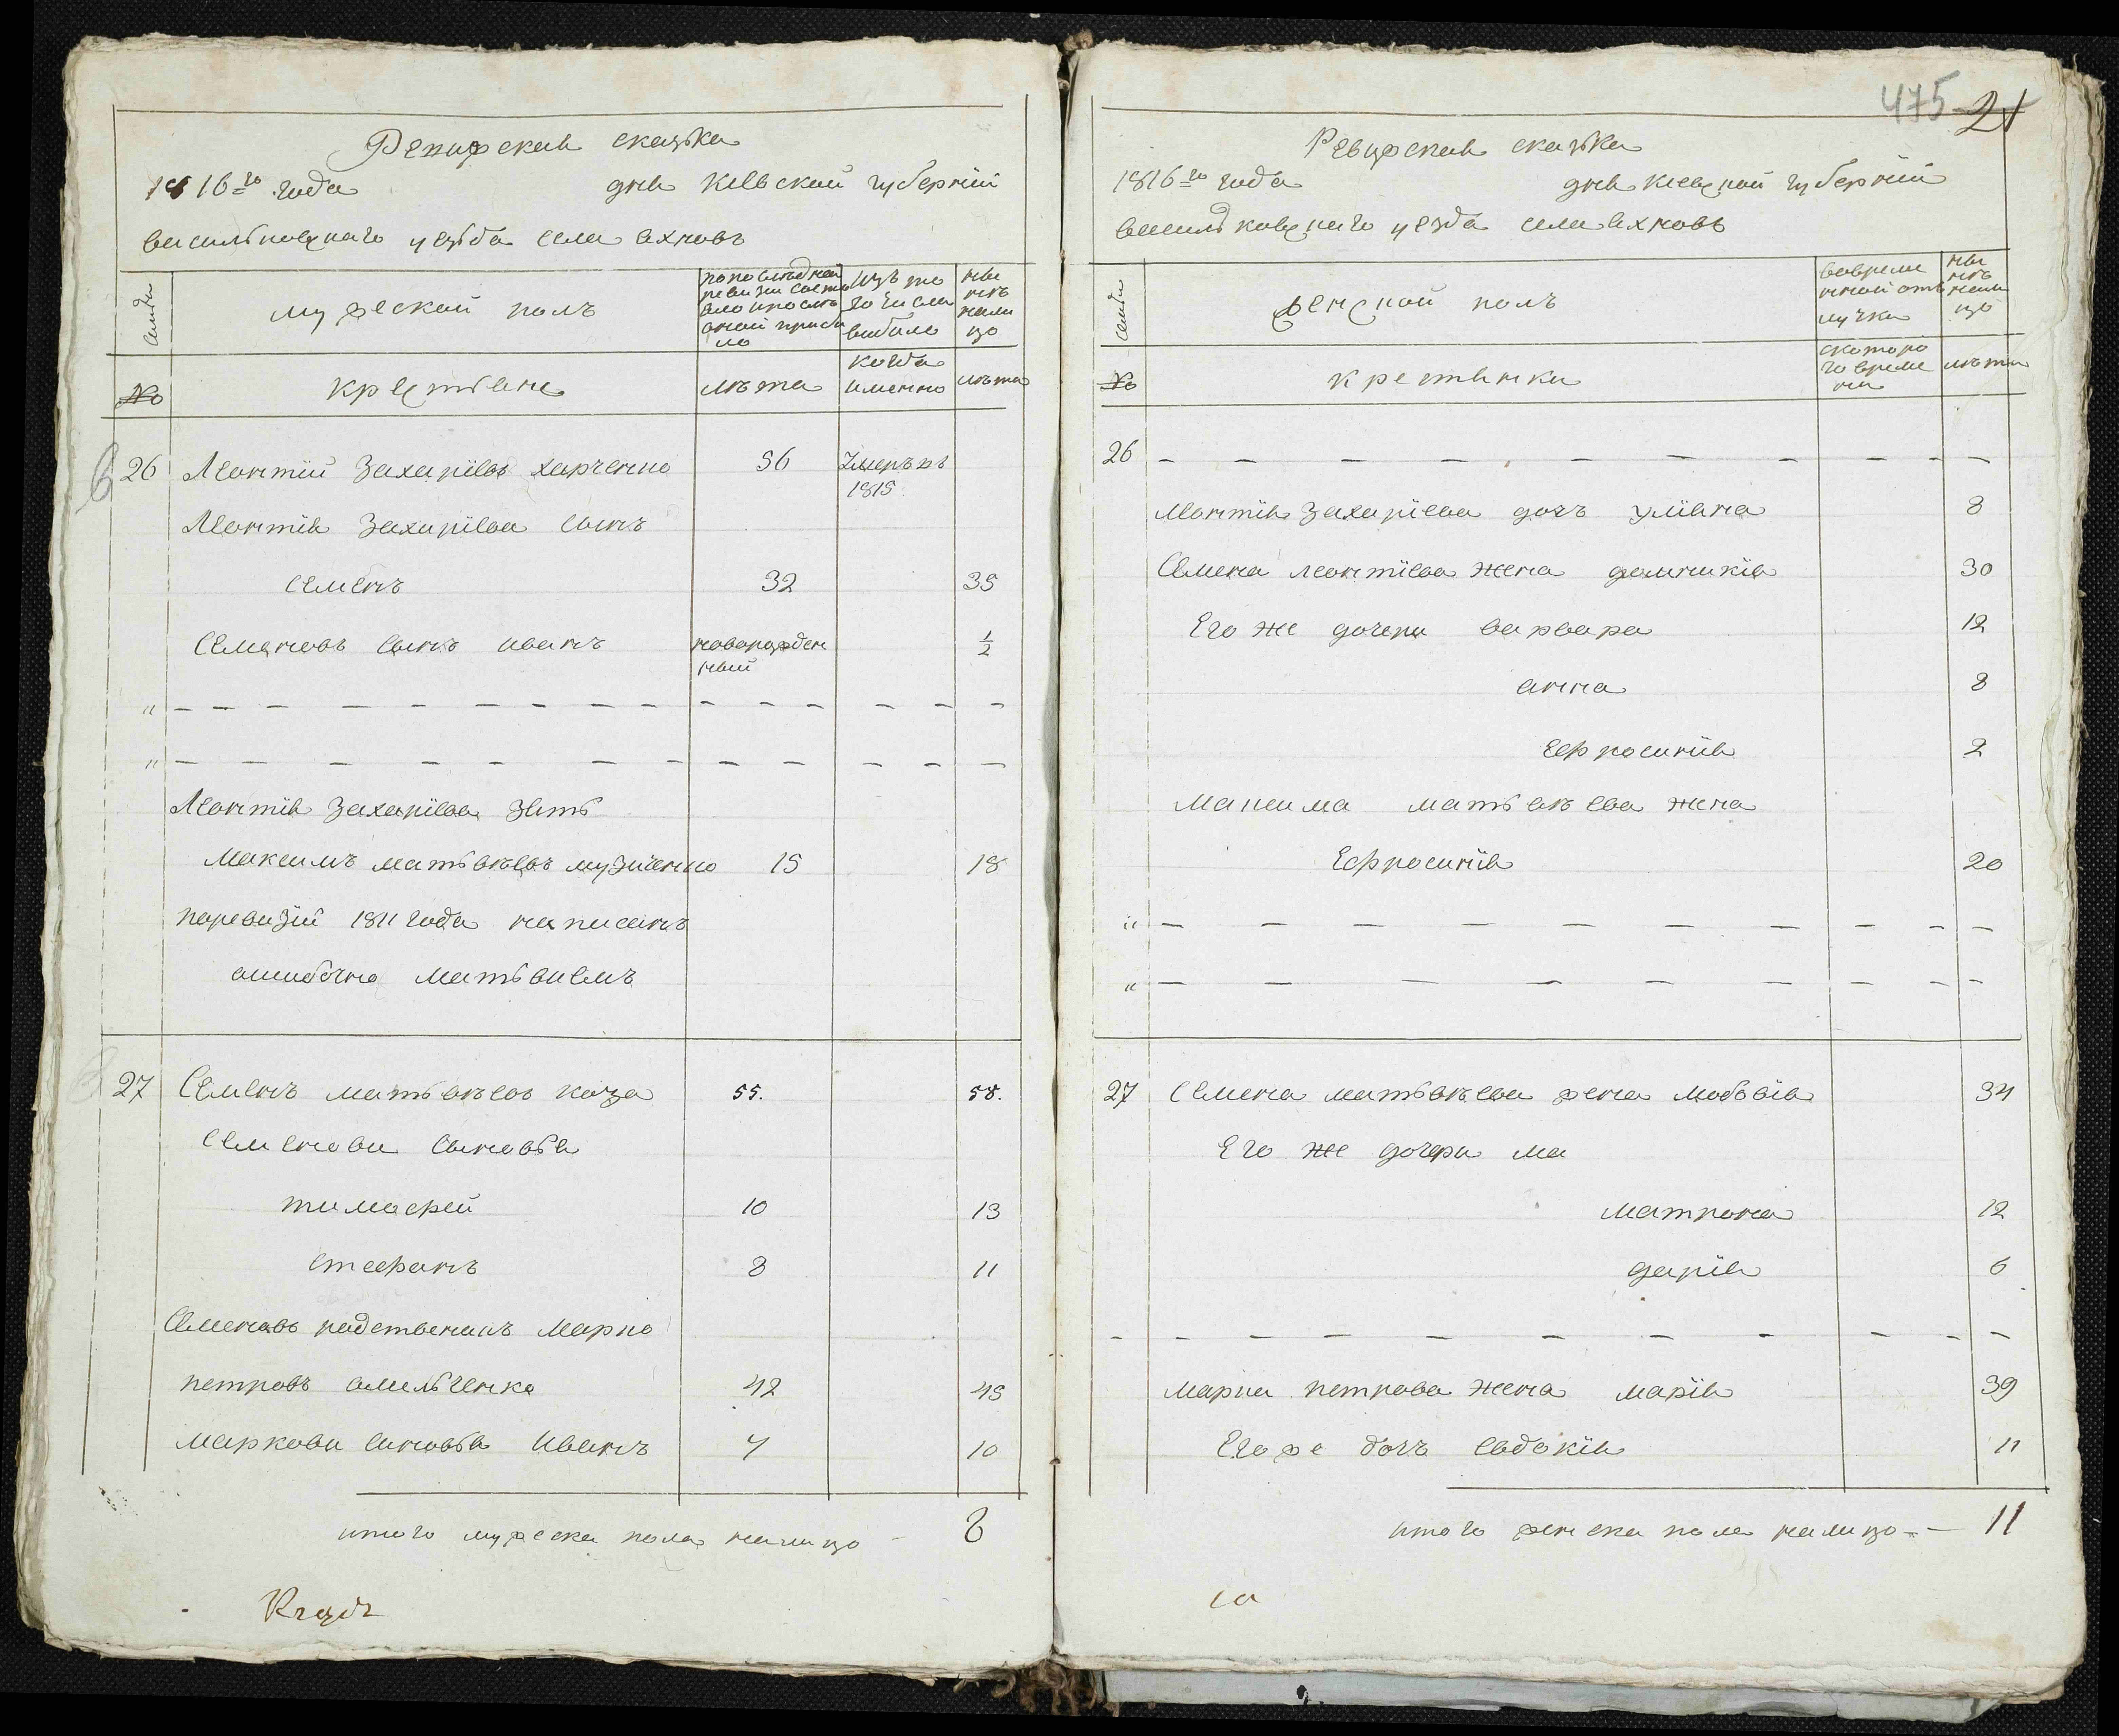 Ревизская сказка
1816=го года дня Киевской губернии
васильковскаго уезда села Яхновъ
семьи
мужеской полъ
по последней ревизии состояло и после оной прибыло
изъ того числа выбыло
ныне налицо
№
крестьяне
лѣта
когда именно
лѣта
26 Леонтий Захариевъ харченко 56 Умеръ въ 1815
Леонтия Захариева сынъ
семенъ 32 35
Семеновъ сынъ иванъ новорожденный 1/2
" — — — — — — — — —
" — — — — — — — — —
Леонтия Захариева зять
Максимъ матьвѣевъ музиченко 15 18
поревизии 1811 года написанъ
ошибочно матьвиемъ
27 Семенъ матьвѣевъ коза 55. 58.
Семенови сыновья
тимофей 10 13
стефанъ 8 11
Семеновъ родственикъ Марко
петровъ омельченко 42 45
маркови синовья иванъ 7 10
итого мужеска пола налицо — 8
475 21
Ревизская сказка
1816=го года дня киевской губернии
васильковскаго уезда села Яхновъ
семьи
женской полъ
вовременной отлучки
ныне налицо
№
крестянки
скоторого времени
лѣта
26 — — — — — — — — —
Леонтия Захариева дочъ улияна 8
Семена леонтиева жена домникия 30
Его же дочери варвара 12
анна 8
Ефросиния 2
Максима матьвѣева жена
Ефросиния 20
" — — — — — — — — —
" — — — — — — — — —
27 Семена матьвѣева жена любовия 34
Его же дочери ма
матрона 12
дария 6
— — — — — — — — —
марка петрова жена мария 39
Его же дочъ евдокия 11
итого женска пола налицо = — 11